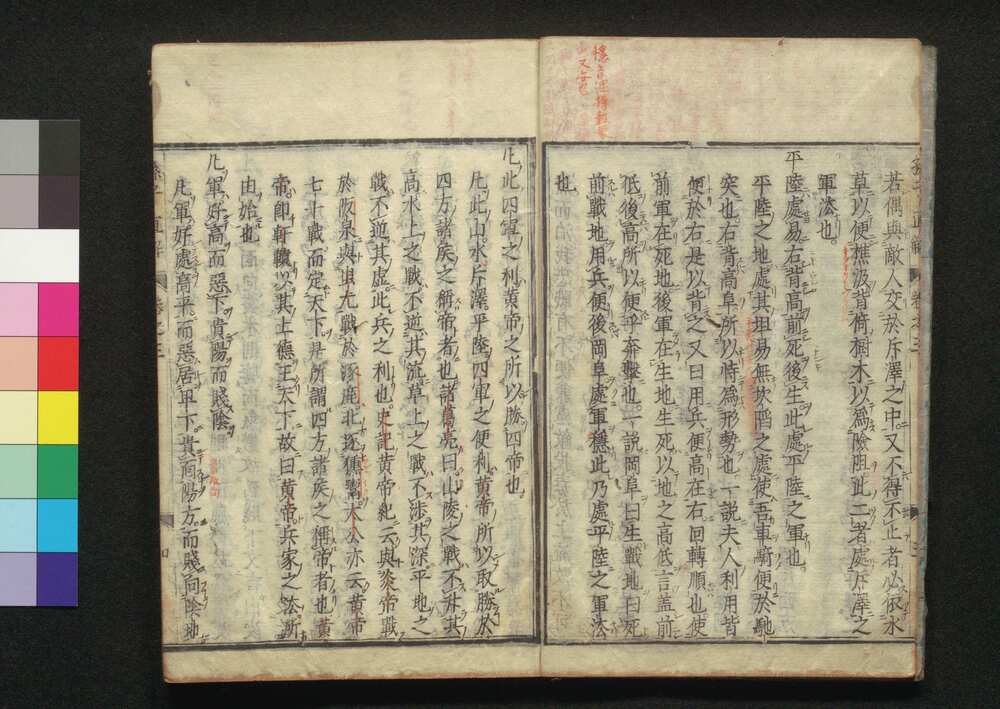 若偶與敵人交於斥澤之中又不得不止者必依水
草以便樵汲背倚樹木以爲險阻此二者處斥澤之
軍法也
平陸處易右背高前死後生此處平陸之軍也
平陸之地處其坦易無坎陷之處使吾軍騎便於馳
突也右背高阜所以恃爲形勢也一說夫人利用皆
便於右是以背之又曰用兵便高在右回轉順也使
前軍在死地後軍在生地生死以地之高低言蓋前
低後高所以便乎奔擊也一說岡阜曰生戰地曰死
前戰地用兵便後岡阜處軍穩此乃處平陸之軍法
也
凡此四軍之利黃帝之所以勝四帝也
凡此山水斥澤平陸四軍之便利黃帝所以取勝於
四方諸侯之稱帝者也諸葛亮曰山陵之戰不升其
高水上之戰不逆其流草上之戰不涉其深平地之
戰不逆其虛此兵之利也史記黃帝紀云與炎帝戰
於阪泉與蚩尤戰於涿鹿北逐獯鬻太公亦云黃帝
七十戰而定天下是所謂四方諸侯之稱帝者也黃
帝卽軒轅以其土德王天下故曰黃帝兵家之法所
由始也
凡軍好高而惡下貴陽而賤陰
凡軍好處高平而惡居卑下貴向陽方而賤向陰地